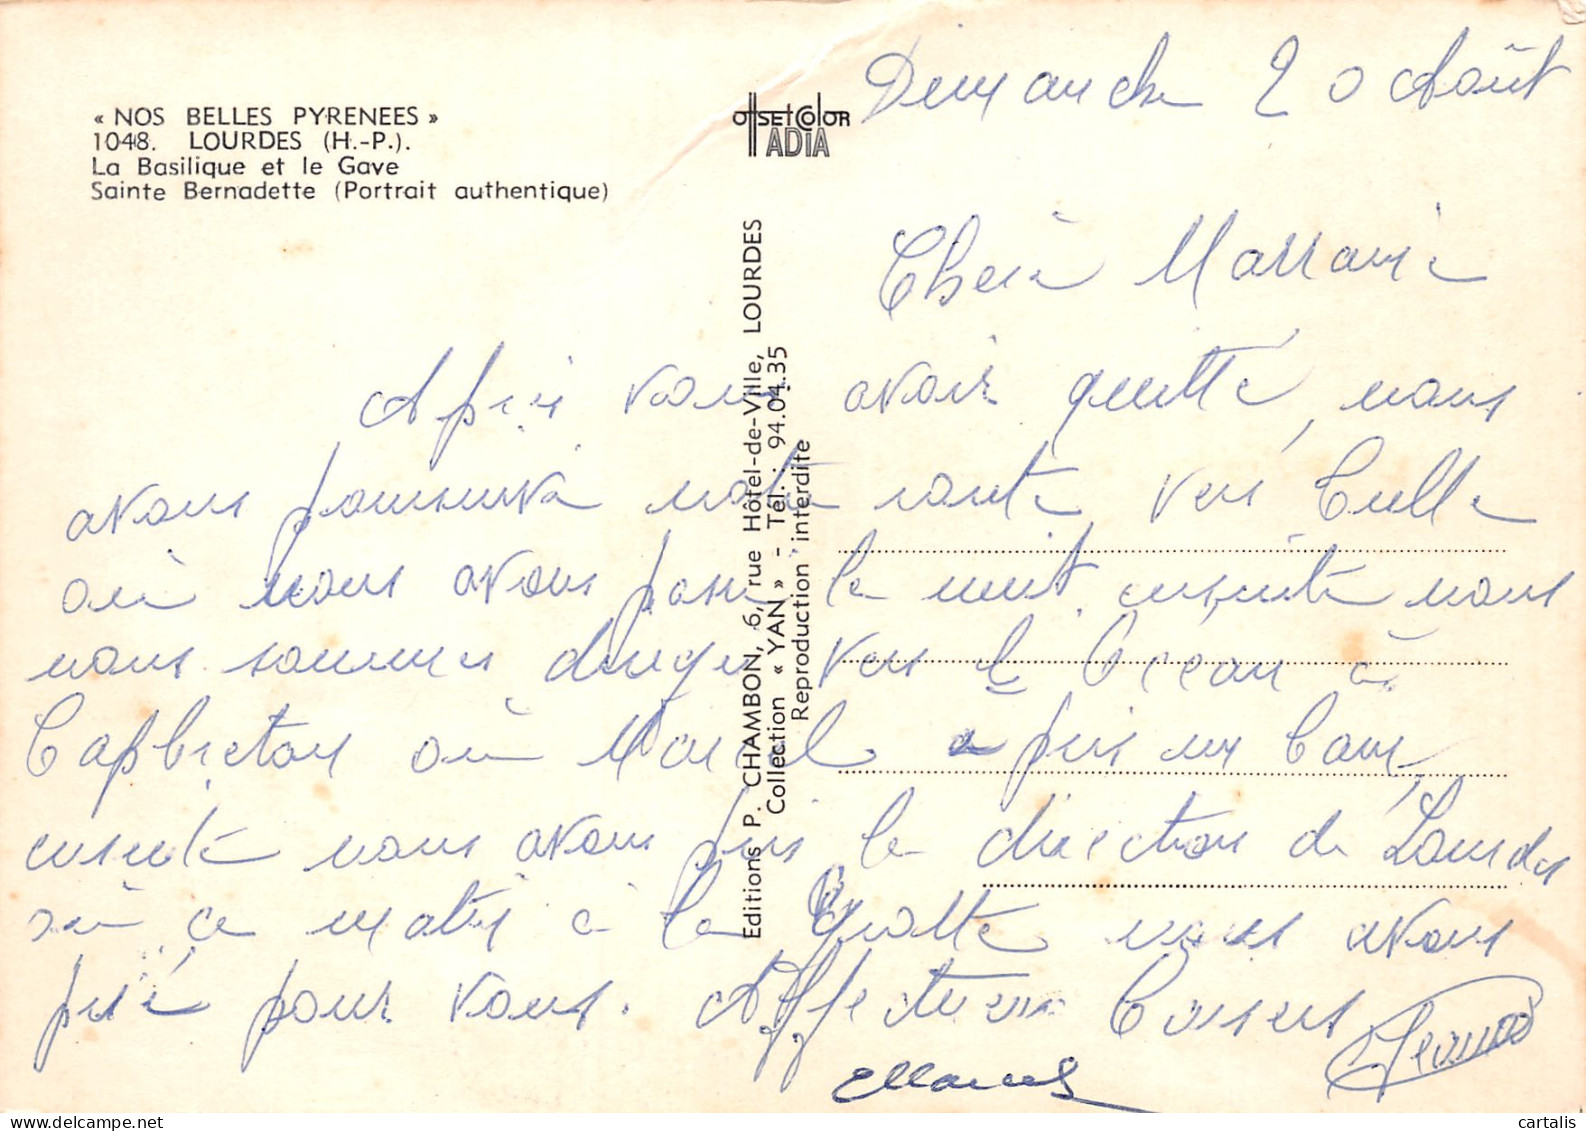 « NOS BELLES PYRENEES »
1048. LOURDES (H.-P.).
La Basilique et le Gave
Sainte Bernadette (Portrait authentique)
OffSET COlOR
ADIA
Editions P. CHAMBON, 6, rue Hôtel-de-Ville, LOURDES
Collection « YAN » - Tél. : 94.04.35
Reproduction interdite
Dimanche 20 Août
Chère Marraine
Après vous avoir quitté, nous
avons poursuivi notre route vers Tulle
où nous avons passé la nuit, ensuite nous
nous sommes dirigés vers l'Océan à
Capbreton où Marcel a pris un bain,
ensuite nous avons pris la direction de Lourdes
où ce matin à la Grotte nous avons
prié pour vous. Affectueux baisers
Marcel
delcampe.net
cartalis